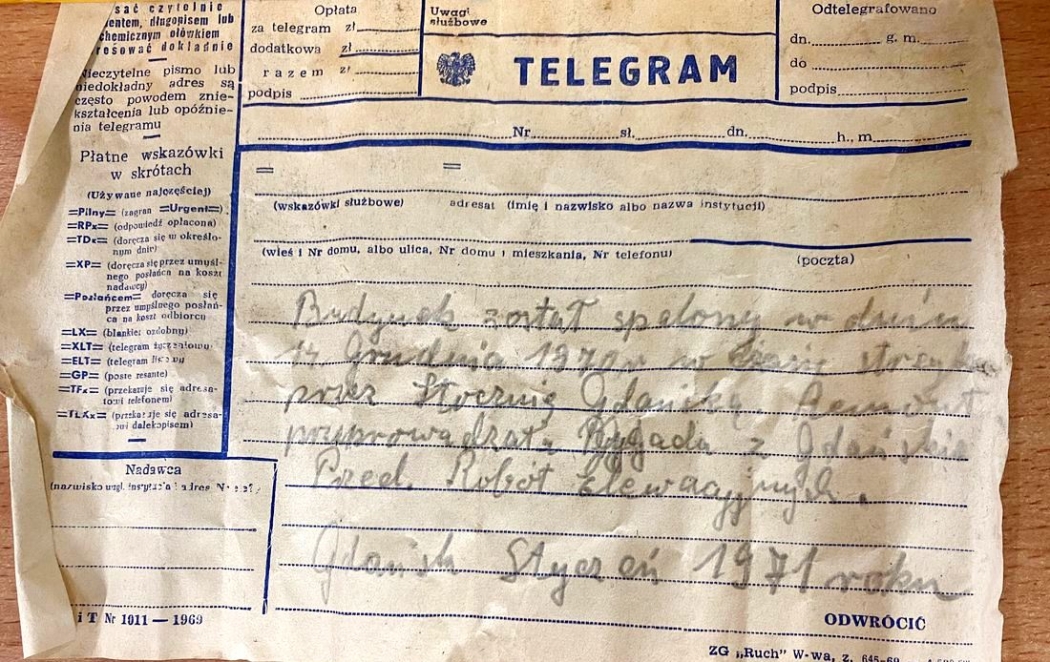 sać czytelnie
entem, długopisem lub
chemicznym ołówkiem
resować dokładnie
Nieczytelne pismo lub
niedokładny adres są
często powodem znie-
kształcenia lub opóźnie-
nia telegramu
Płatne wskazówki
w skrótach
(Używane najczęściej)
=Pilny= (zagran =Urgent=)
=RPx= (odpowiedź opłacona)
=TDx= (doręcza się w określo-
nym dniu)
=XP= (doręcza się przez umyśl-
nego posłańca na koszt
nadawcy)
=Posłańcem= doręcza się
przez umyślnego posłań-
ca na koszt odbiorcy
=LX= (blankiet ozdobny)
=XLT= (telegram
=ELT= (telegram
=GP= (poste restante)
=TFx= (przekazuje się adresa-
towi telefonem)
=TLXx= (przekazuje się adresa-
towi dalekopisem)
Nadawca
(nazwisko wzgl. instytucja i adres
i T Nr 1011 — 1969
Opłata
za telegram zł
dodatkowa zł
razem zł
podpis
Uwagi
służbowe
TELEGRAM
Odtelegrafowano
dn. g. m.
do
podpis
Nr sł. dn. h, m
= =
(wskazówki służbowe) adresat (imię i nazwisko albo nazwa instytucji)
(wieś i Nr domu, albo ulica, Nr domu i mieszkania, Nr telefonu) (poczta)
Budynek został spalony w dniu
14 Grudnia 1970 r w czasie strejku
przez Stocznię Gdańską. Remont
przyprowadzała Brygada z Gdańskie
Przed. Robót Elewacyjnych.
Gdańsk Styczeń 1971 roku
ODWRÓCIĆ
ZG „Ruch" W-wa, z. 645-69